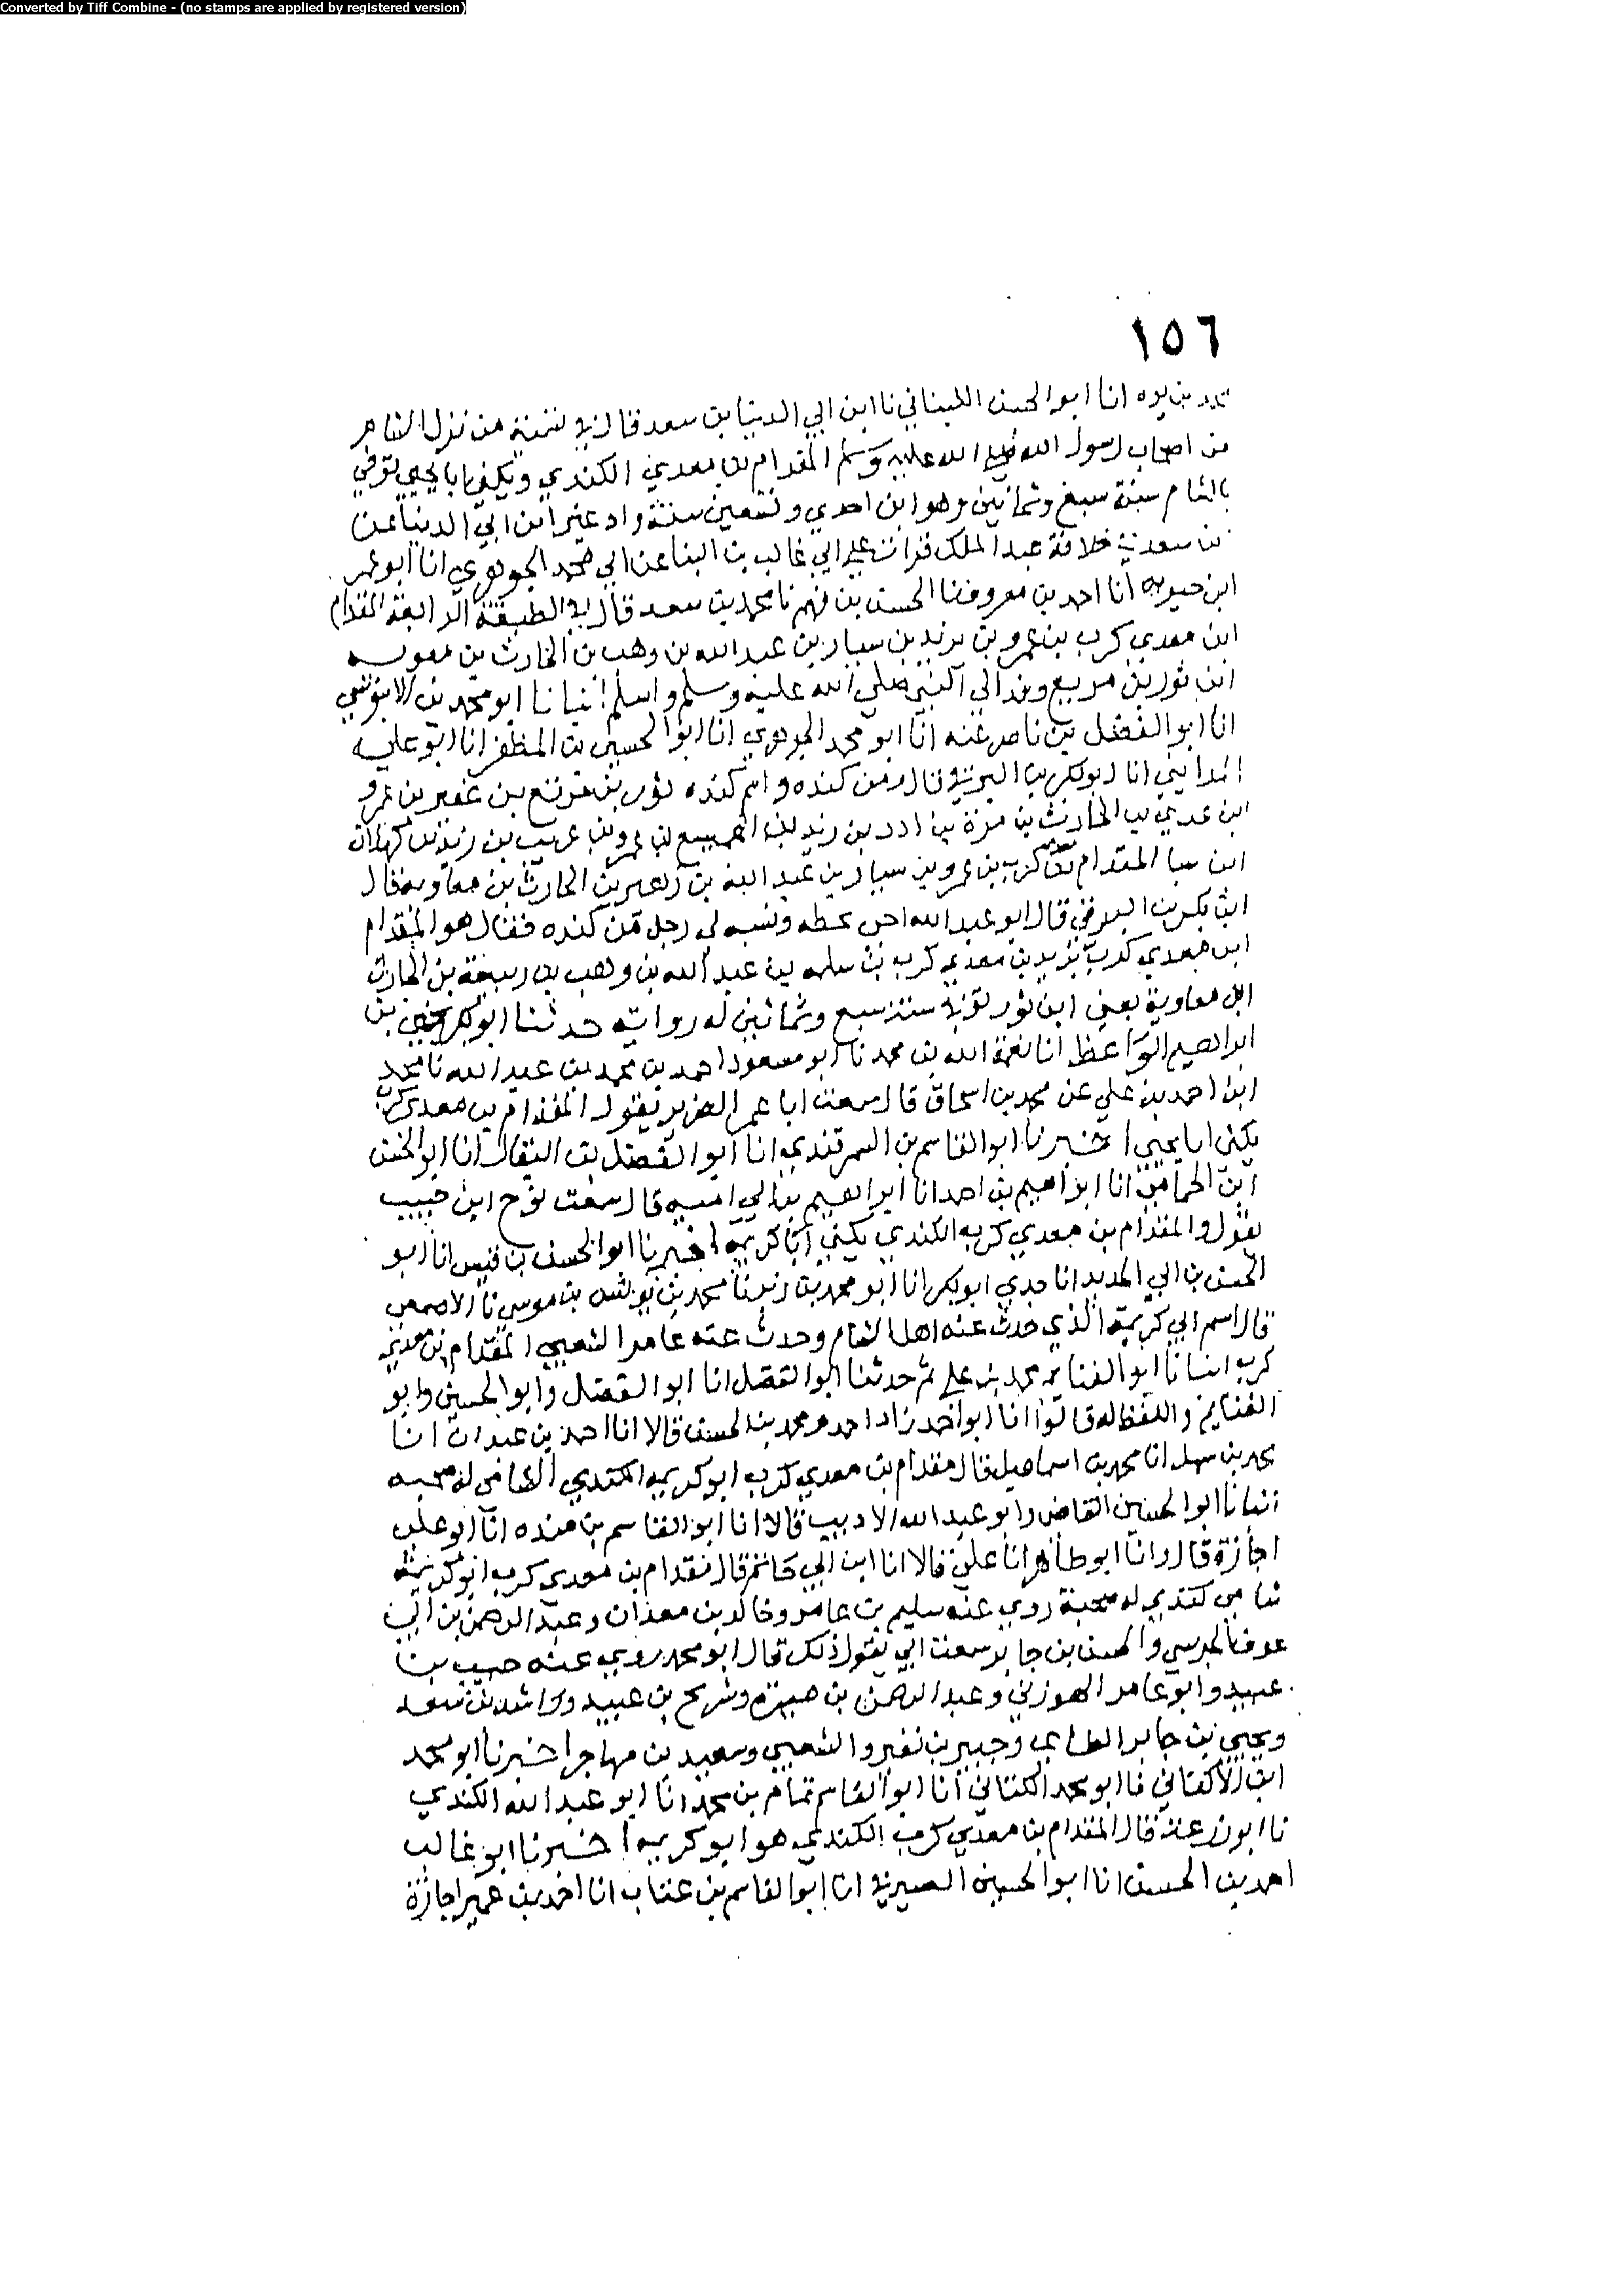 Converted by Tiff Combine - (no stamps are applied by registered version)
١٥٦
بن يوه انا ابو الحسن اللبناني نا ابن ابي الدنيا بن سعد قال في تسمية من نزل الشام
من اصحاب رسول الله صلي الله عليه وسلم المقدام بن معدي الكندي ويكني ابا يحيي توفي
بالشام سنة سبع وثمانين وهو ابن احدي وتسعين سنة زاد غير ابن ابي الدنيا عن
بن سعد في خلافة عبد الملك قرات علي ابي غالب بن البنا عن ابي محمد الجوهري انا ابو عمر
ابن حيويه انا احمد بن معروف نا الحسن بن فهم نا محمد بن سعد قال في الطبقة الرابعة المقدام
ابن معدي كرب بن عمرو بن يزيد بن سيار بن عبد الله بن وهب بن الحارث بن معويه
ابن ثور بن مريع وفد الي النبي صلي الله عليه وسلم واسلم انبانا ابو محمد بن الابنوسي
انا ابو الفضل بن ناصر عنه انا ابو محمد الجوهري انا ابو الحسين بن المظفر انا ابو علي
المدايني انا ابو بكر بن البرقي قال ومن كنده واسم كنده ثور بن مرتع بن عفير بن عمرو
ابن عدي بن الحارث بن مرة بن ادد بن زيد بن الهميسع بن عمرو بن عريب بن زيد بن كهلان
ابن سبا المقدام بن معدي كرب بن عمرو بن سيار بن عبد الله بن وهب بن الحارث بن معاويه قال
ابن بكر بن البرقي قال ابو عبد الله احن بخطه ونسبه لي رجل من كنده فقال هو المقدام
ابن معدي كرب بن يزيد بن معدي كرب بن سلمه بن عبد الله بن وهب بن ربيعة بن الحارث
ابن معاوية يعني ابن ثور توفي سنة سبع وثمانين له رواية حدثنا ابو بكر يحيي بن
ابراهيم الواعظ انا نعمة الله بن محمد نا ابو مسعود احمد بن محمد بن عبد الله نا محمد
ابن احمد بن علي عن محمد بن اسحاق قال سمعت ابا عمر الضرير يقول المقدام بن معدي كرب
يكني ابا يحيي اخبرنا ابو القاسم بن السمرقندي انا ابو الفضل بن البقال انا ابو الحسن
ابن الحمامي انا ابراهيم بن احمد انا ابراهيم بن ابي اميه قال سمعت نوح ابن حبيب
يقول والمقدام بن معدي كرب الكندي يكني ابا كريمة اخبرنا ابو الحسن بن قبيس انا ابو
الحسن بن ابي الحديد انا جدي ابو بكر انا ابو محمد بن زبر نا محمد بن يونس بن موسي نا الاصمعي
قال اسم ابي كريمة الذي حدث عنه اهل الشام وحدث عنه عامر الشعبي المقدام بن معدي
كرب انبانا ابو الغنايم محمد بن علي ثم حدثنا ابو الفضل انا ابو الفضل وابو الحسين وابو
الغنايم واللفظ له قالوا انا ابو احمد زاد احمد ومحمد بن الحسن قالا انا احمد بن عبدان انا
محمد بن سهل انا محمد بن اسماعيل قال مقدام بن معدي كرب ابو كريمه الكندي الشامي له صحبه
انبانا ابو الحسين القاضي وابو عبد الله الاديب قالا انا ابو القاسم بن منده انا ابو علي
اجازة قال وانا ابو طاهر انا علي قالا انا ابن ابي حاتم قال مقدام بن معدي كرب ابو كريمة
شامي كندي له صحبة روي عنه سليم بن عامر وخالد بن معدان وعبد الرحمن بن ابي
عوف الجرسي والحسن بن جابر سمعت ابي يقول ذلك قال ابو محمد روي عنه حبيب بن
عبيد وابو عامر الهوزني وعبد الرحمن بن ميسرة وشريح بن عبيد وراشد بن سعد
ويحيي بن جابر الطايي وجبير بن نفير والشعبي وسعيد بن مهاجر اخبرنا ابو محمد
ابن الاكفاني نا ابو محمد الكتاني انا ابو القاسم تمام بن محمد انا ابو عبد الله الكندي
نا ابو زرعة قال المقدام بن معدي كرب الكندي هو ابو كريمه اخبرنا ابو غالب
احمد بن الحسن انا ابو الحسين الصيرفي انا ابو القاسم بن عتاب انا احمد بن عمير اجازة